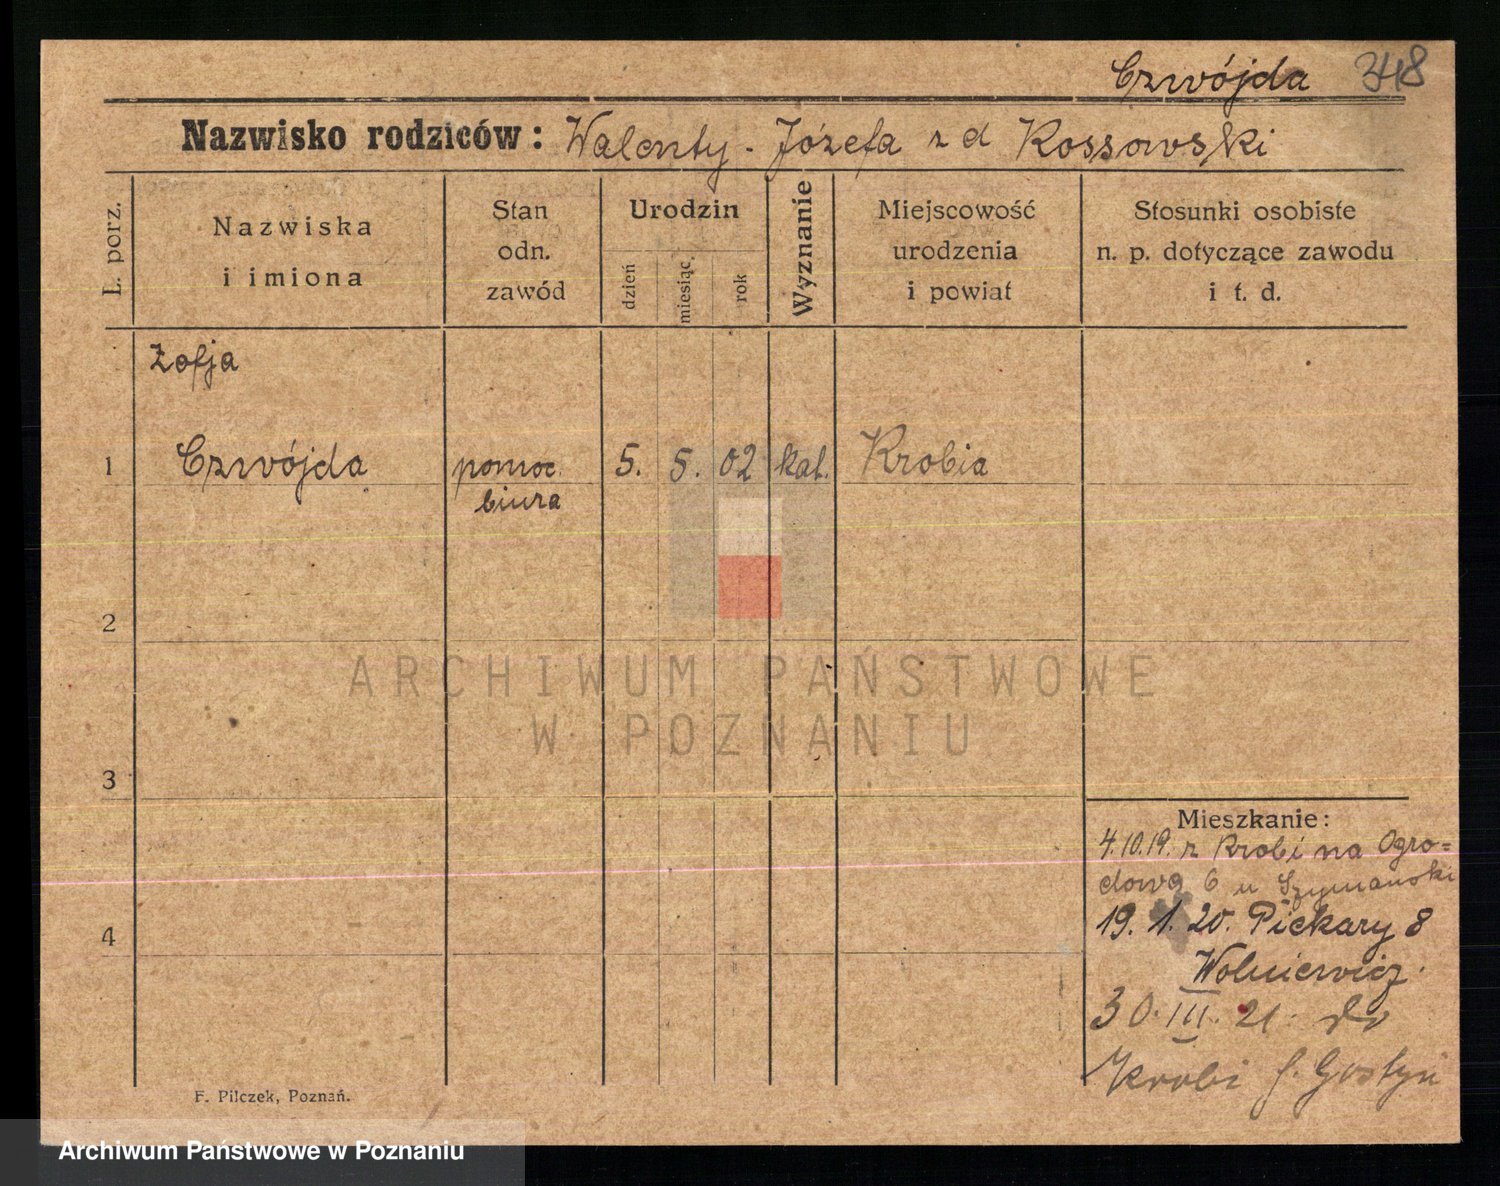 Czwójda 348
Nazwisko rodziców: Walenty - Józefa z d Kossowski
L. porz.
Nazwiska
i imiona
Stan
odn.
zawód
Urodzin
dzień
miesiąc.
rok
Wyznanie
Miejscowość
urodzenia
i powiat
Stosunki osobiste
n. p. dotyczące zawodu
i t. d.
Zofja
1 Czwójda pomoc. 5. 5. 02 kat. Krobia
biura
2
ARCHIWUM PAŃSTWOWE
W POZNANIU
3
Mieszkanie:
4.10.19. z Krobi na Ogro=
dową 6 u Szymański
4
19. 1. 20. Piekary 8
Wolniewicz.
30. III. 21. do
Krobi Gostyń
F. Pilczek, Poznań.
Archiwum Państwowe w Poznaniu